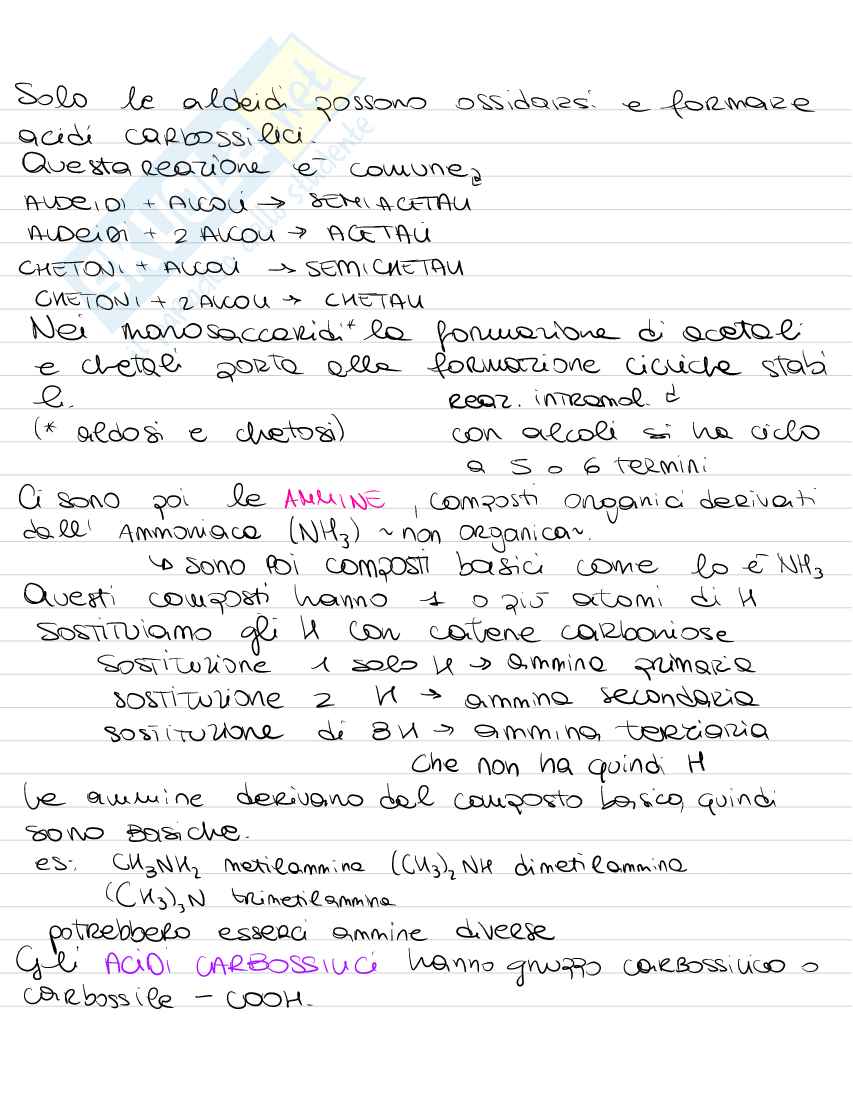 Solo le aldeidi possono ossidarsi e formare
acidi carbossilici.
Questa reazione è comune
ALDEIDI + ALCOLI → SEMIACETALI
ALDEIDI + 2 ALCOLI → ACETALI
CHETONI + ALCOLI → SEMICHETALI
CHETONI + 2 ALCOLI → CHETALI
Nei monosaccaridi* la formazione di acetali
e chetali porta alla formazione cicliche stabi
li.
reaz. intramol.
(* aldosi e chetosi)
con alcoli si ha ciclo
a 5 o 6 termini
Ci sono poi le AMMINE, composti organici derivati
dall' Ammoniaca (NH3) ~ non organica ~.
↳ sono poi composti basici come lo è NH3
Questi composti hanno 1 o più atomi di H
sostituiamo gli H con catene carboniose
Sostituzione 1 solo H → ammina primaria
sostituzione 2 H → ammina secondaria
sostituzione di 3H → ammina terziaria
che non ha quindi H
Le ammine derivano dal composto basico, quindi
sono basiche.
es: CH3NH2 metilammina (CH3)2NH dimetilammina
(CH3)3N trimetilammina
potrebbero esserci ammine diverse
Gli ACIDI CARBOSSILICI hanno gruppo carbossilico o
carbossile - COOH.